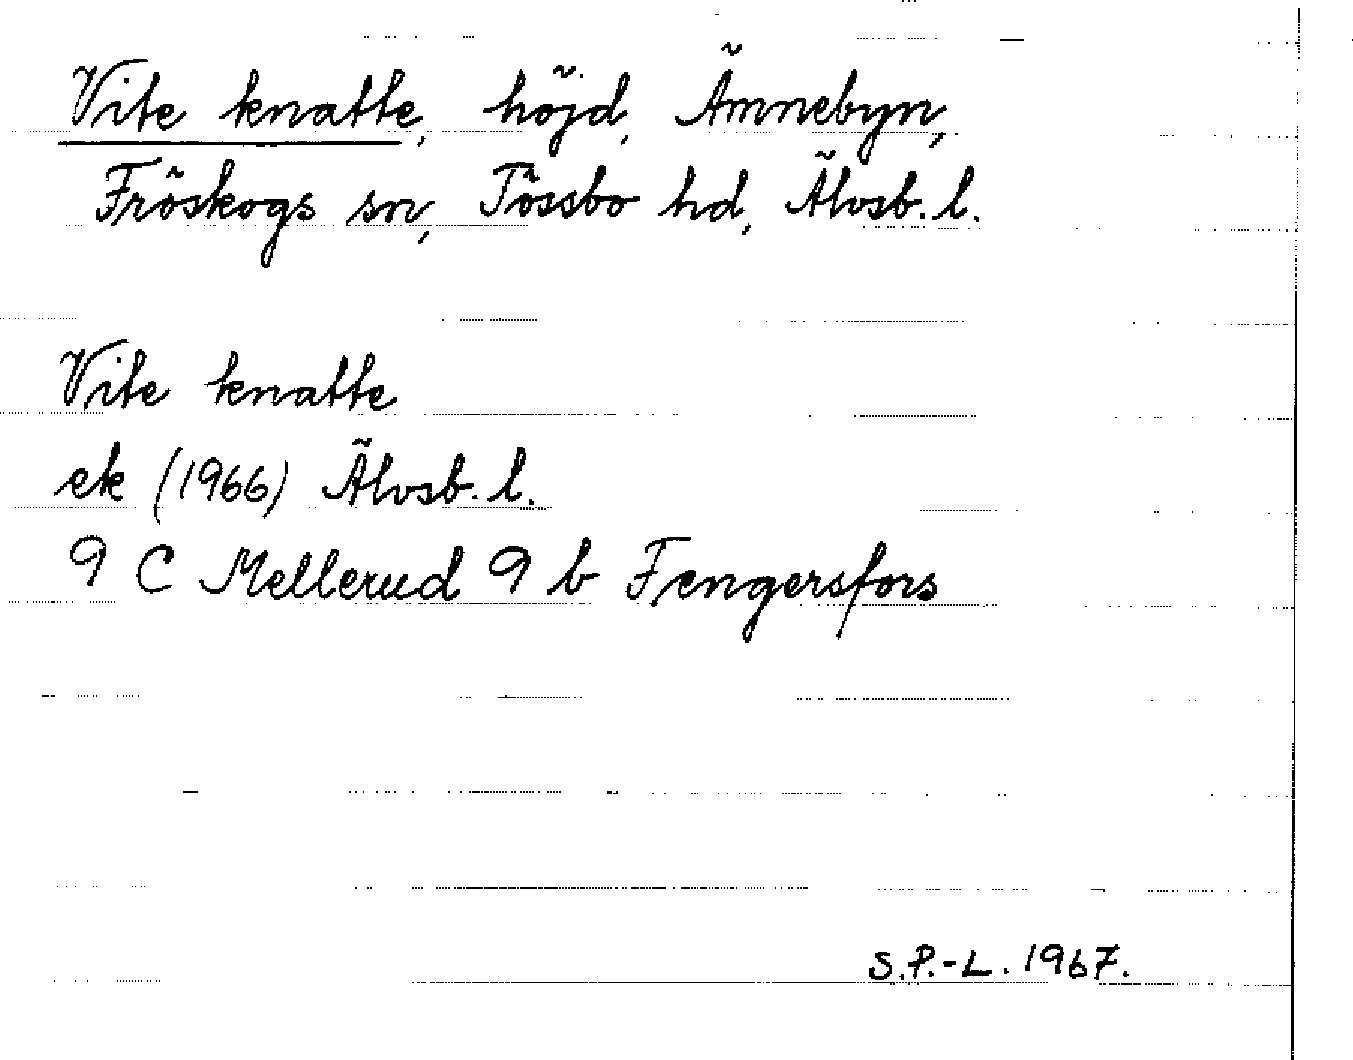 Vite knatte, höjd, Ämnebyn,
Fröskogs sn, Tössbo hd, Älvsb. l.
Vite knatte
ek (1966) Älvsb. l.
9 C Mellerud 9 b Fengersfors
S.P.-L. 1967.